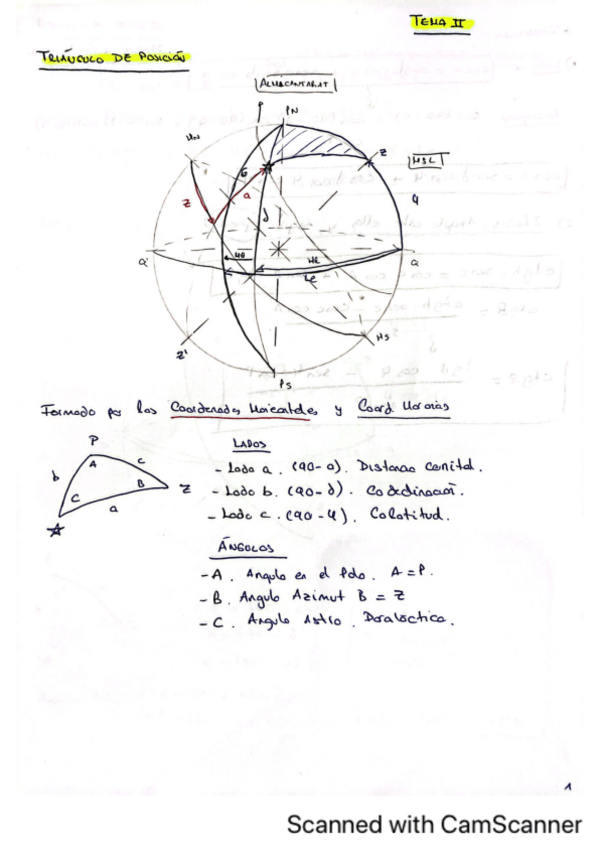 TEMA II
TRIÁNGULO DE POSICIÓN
ALMICANTARAT
P
PN
HN
Z
HSL
G
a
Z
d
φ
HG
HL
Lg
Q'
Q
Z'
HS
PS
Formado por las Coordenadas Horizontales y Coord Horarias
P
A
b
c
C
B
Z
a
LADOS
- Lado a. (90-a). Distancia cenital.
- Lado b. (90-d). Codeclinación.
- Lado c. (90-φ). Colatitud.
ÁNGULOS
- A. Angulo en el Polo. A = P.
- B. Angulo Azimut B = Z
- C. Angulo Astro. Paraláctica.
1
Scanned with CamScanner